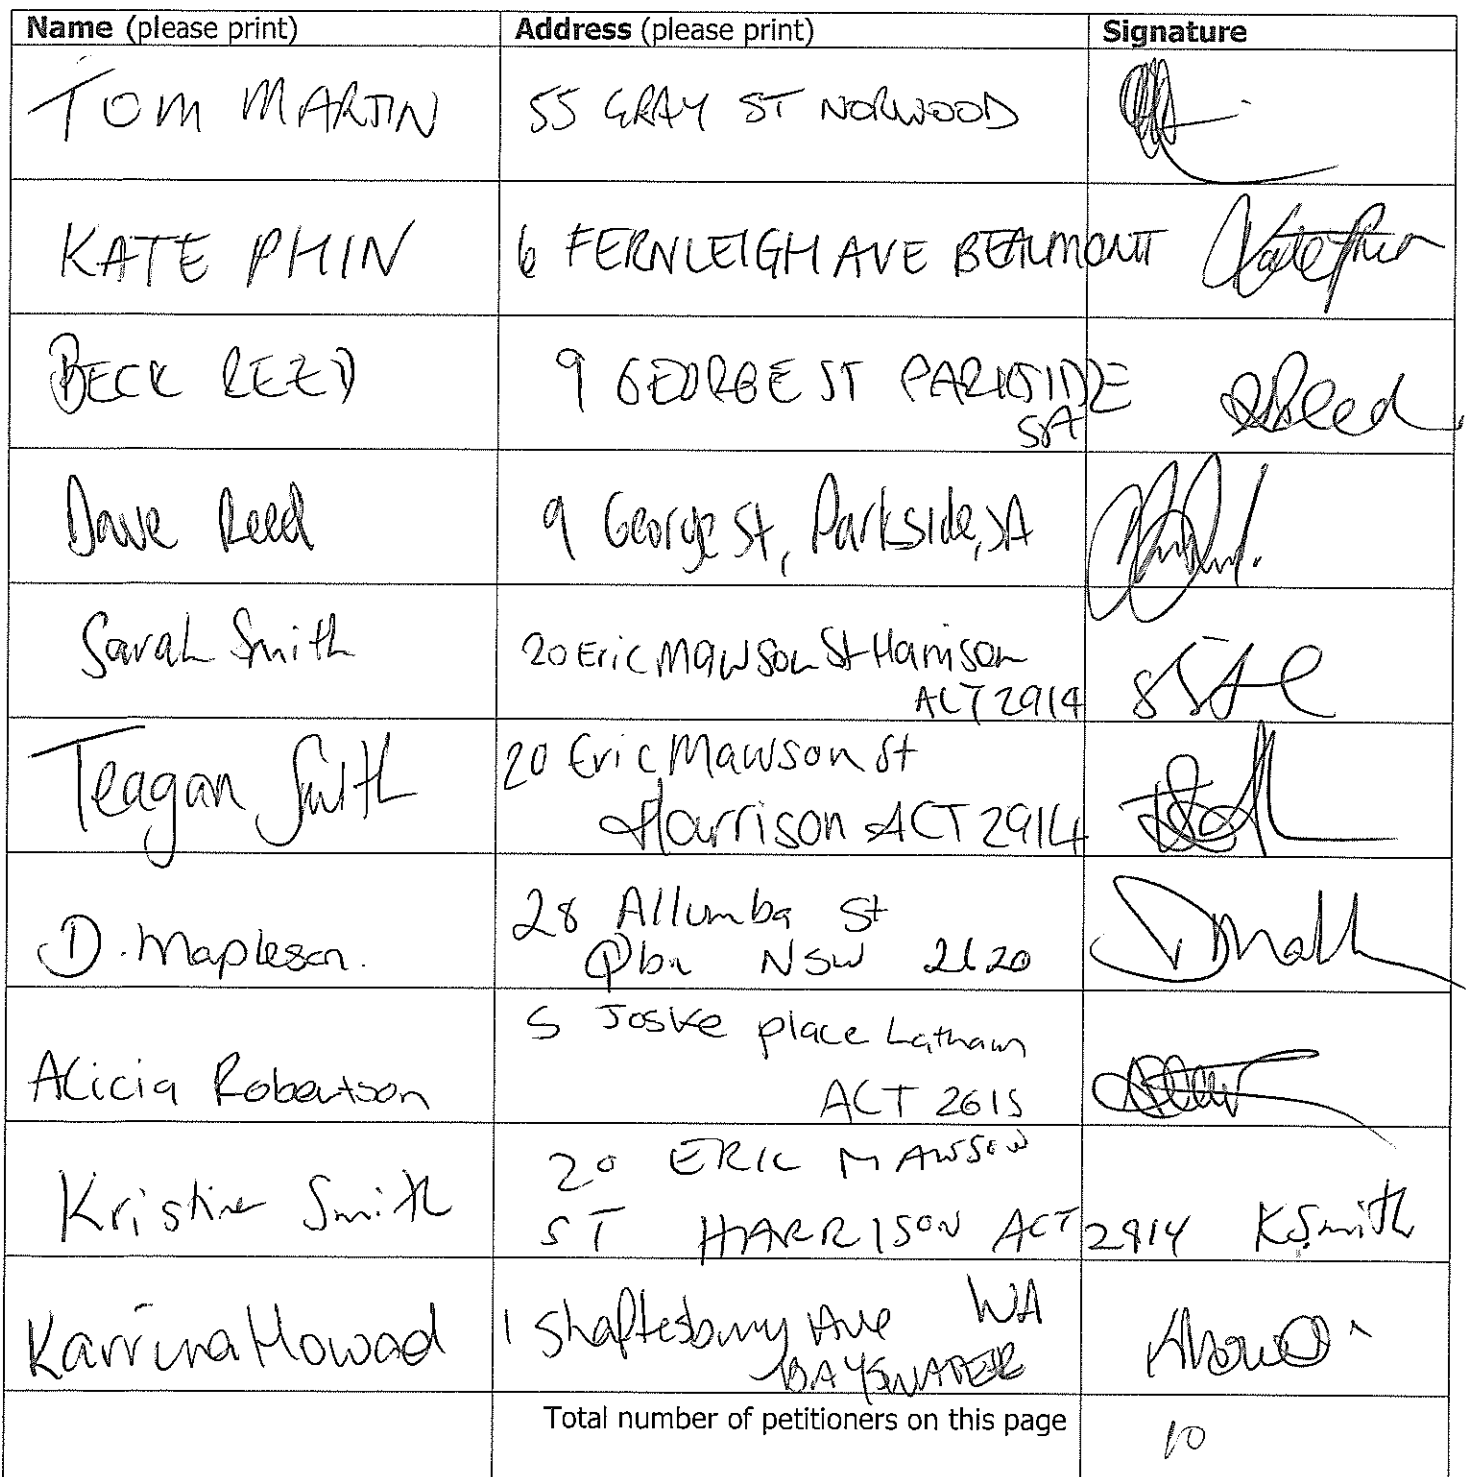 Name (please print) Address (please print) Signature
TOM MARTIN 55 GRAY ST NORWOOD
KATE PHIN 6 FERNLEIGH AVE BEAUMONT
BECK REED 9 GEORGE ST PARKSIDE
SA
Dave Reed 9 George St, Parkside, SA
Sarah Smith 20 Eric Mawson St Harrison
ACT 2914
Teagan Smith 20 Eric Mawson St
Harrison ACT 2914
D. Mapleson. 28 Allumba St
Qbn NSW 2620
Alicia Robertson 5 Joske place Latham
ACT 2615
Kristine Smith 20 ERIC MAWSON
ST HARRISON ACT 2914 KSmith
Karrina Howad 1 Shaftesbury Ave WA
BAYSWATER
Total number of petitioners on this page 10